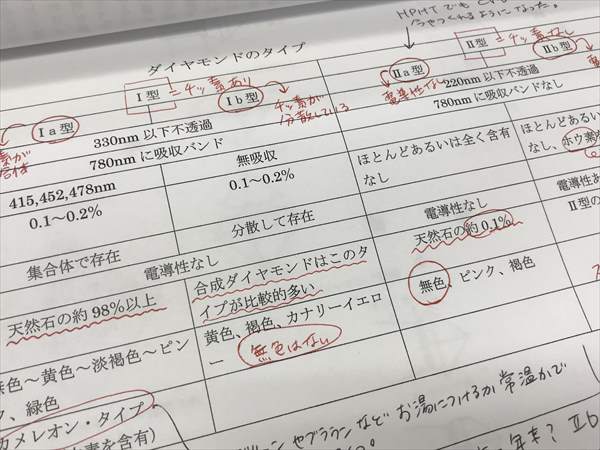 HPHTでも
ようになった。
ダイヤモンドのタイプ
Ⅰ型
=チッ素あり
Ⅱ型
=チッ素なし
Ⅰa型
Ⅰb型
チッ素が
分散している
Ⅱa型
電導性なし
Ⅱb型
330nm 以下不透過
220nm 以下不透過
780nm に吸収バンド
780nm 吸収バンドなし
415,452,478nm
無吸収
ほとんどあるいは全く含有
なし
ほとんどある
なし、ホウ素
0.1~0.2%
0.1~0.2%
集合体で存在
分散して存在
電導性なし
電導性なし
電導性あ
天然石の約 98%以上
合成ダイヤモンドはこのタ
イプが比較的多い
天然石の約 0.1%
Ⅱ型の
無色~黄色~淡褐色~ピン
ク、緑色
黄色、褐色、カナリーイエロ
ー
無色はない
無色、ピンク、褐色
カメレオン・タイプ
素を含有)
やブラウンなど お湯につけるか常温かで
Ⅱb